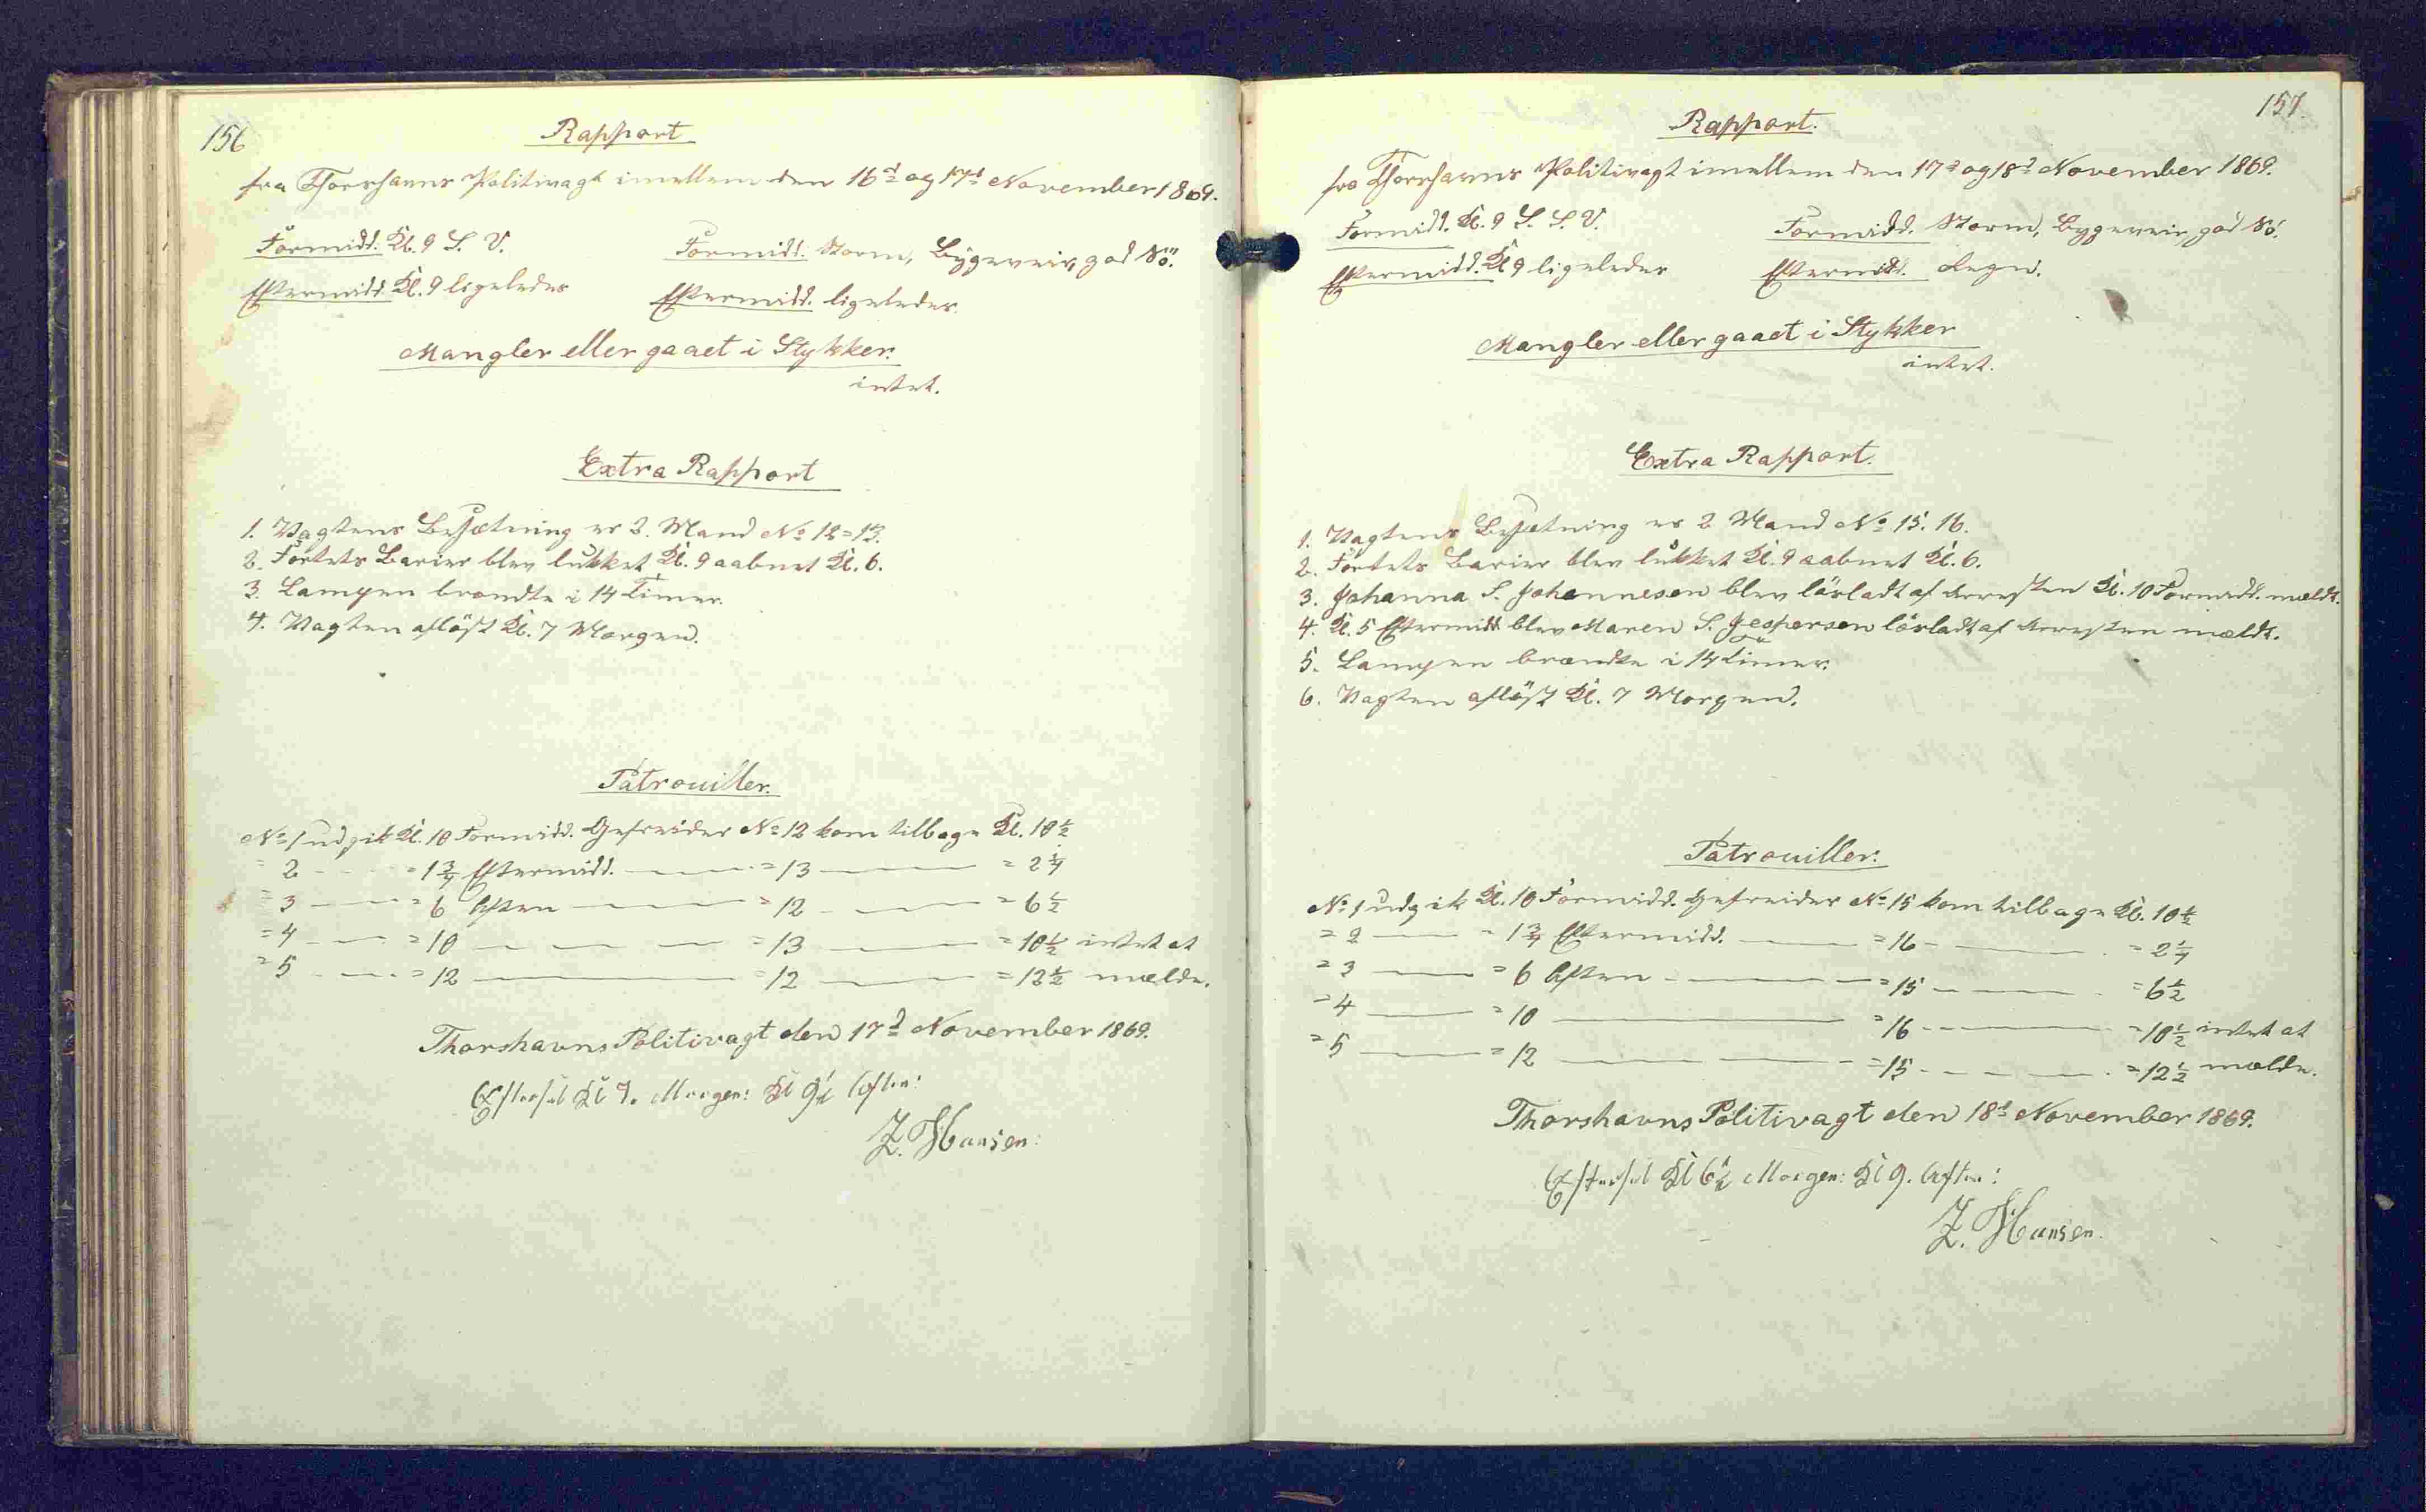 156
Rapport
fra Thorshavns Politivagt imellem den 16d og 17d November 1869.
Formidd. Kl. 9 S. V. Formidd. Storm, Bygeveir, god Sö.
Eftermidd. Kl. 9 ligeledes Eftermidd. ligeledes.
Mangler eller gaaet i Stykker.
intet.
Extra Rapport
1. Vagtens Besætning er 2. Mand No 12=13.
2. Fortets Barier blev lukket Kl. 9 aabnet Kl. 6.
3. Lampen brændte i 14 Timer.
4. Vagten aflöst Kl. 7 Morgend.
Patrouiller.
No 1 udgik Kl. 10 Formidd. Gefreider No 12 kom tilbage Kl. 10 1/2
= 2 — = 1 3/4 Eftermidd. — = 13 — = 2 1/4
= 3 — = 6 Aften — = 12 — = 6 1/2
= 4 — = 10 — = 13 — = 10 1/2 intet at
= 5 — = 12 — = 12 — = 12 1/2 melde.
Thorshavns Politivagt den 17d November 1869.
Efterset Kl 7. Morgen: Kl 9 1/2 Aften:
Z. Hansen:
157.
Rapport.
fra Thorshavns Politivagt imellem den 17d og 18d November 1869.
Formidd. Kl. 9 S. S. V. Formidd. Storm, Bygeveir, god Sö.
Eftermidd. Kl 9 ligeledes Eftermidd. Regn.
Mangler eller gaaet i Stykker
intet.
Extra Rapport.
1. Vagtens Besætning er 2 Mand No 15. 16.
2. Fortets Barier blev lukket Kl. 9 aabnet Kl. 6.
3. Johanna S. Johannesen blev lösladt af Arresten Kl. 10 Formidd. meldt.
4. Kl. 5 Eftermidd. blev Maren S. Jespersen lösladt af Arresten meldt.
5. Lampen brændte i 14 Timer.
6. Vagten aflöst Kl. 7 Morgend.
Patrouiller.
No 1 udgik Kl. 10 Formidd. Gefreider No 15 kom tilbage Kl. 10 1/2
= 2 — = 1 3/4 Eftermidd. — = 16 — = 2 1/4
= 3 — = 6 Aften — = 15 — = 6 1/2
= 4 — = 10 — = 16 — = 10 1/2 intet at
= 5 — = 12 — = 15 — = 12 1/2 melde.
Thorshavns Politivagt den 18d November 1869.
Efterset Kl 6 1/2 Morgen: Kl 9. Aften:
Z. Hansen.